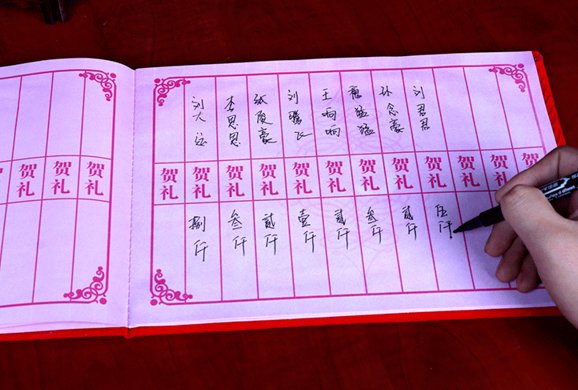 贺礼
贺礼
贺礼
刘大
贺礼
捌仟
李思思
贺礼
叁仟
张殷豪
贺礼
贰仟
刘腾飞
贺礼
壹仟
王响响
贺礼
贰仟
猛猛
贺礼
叁仟
孙念豪
贺礼
贰仟
刘君君
贺礼
伍仟
贺礼
贺礼
贺礼